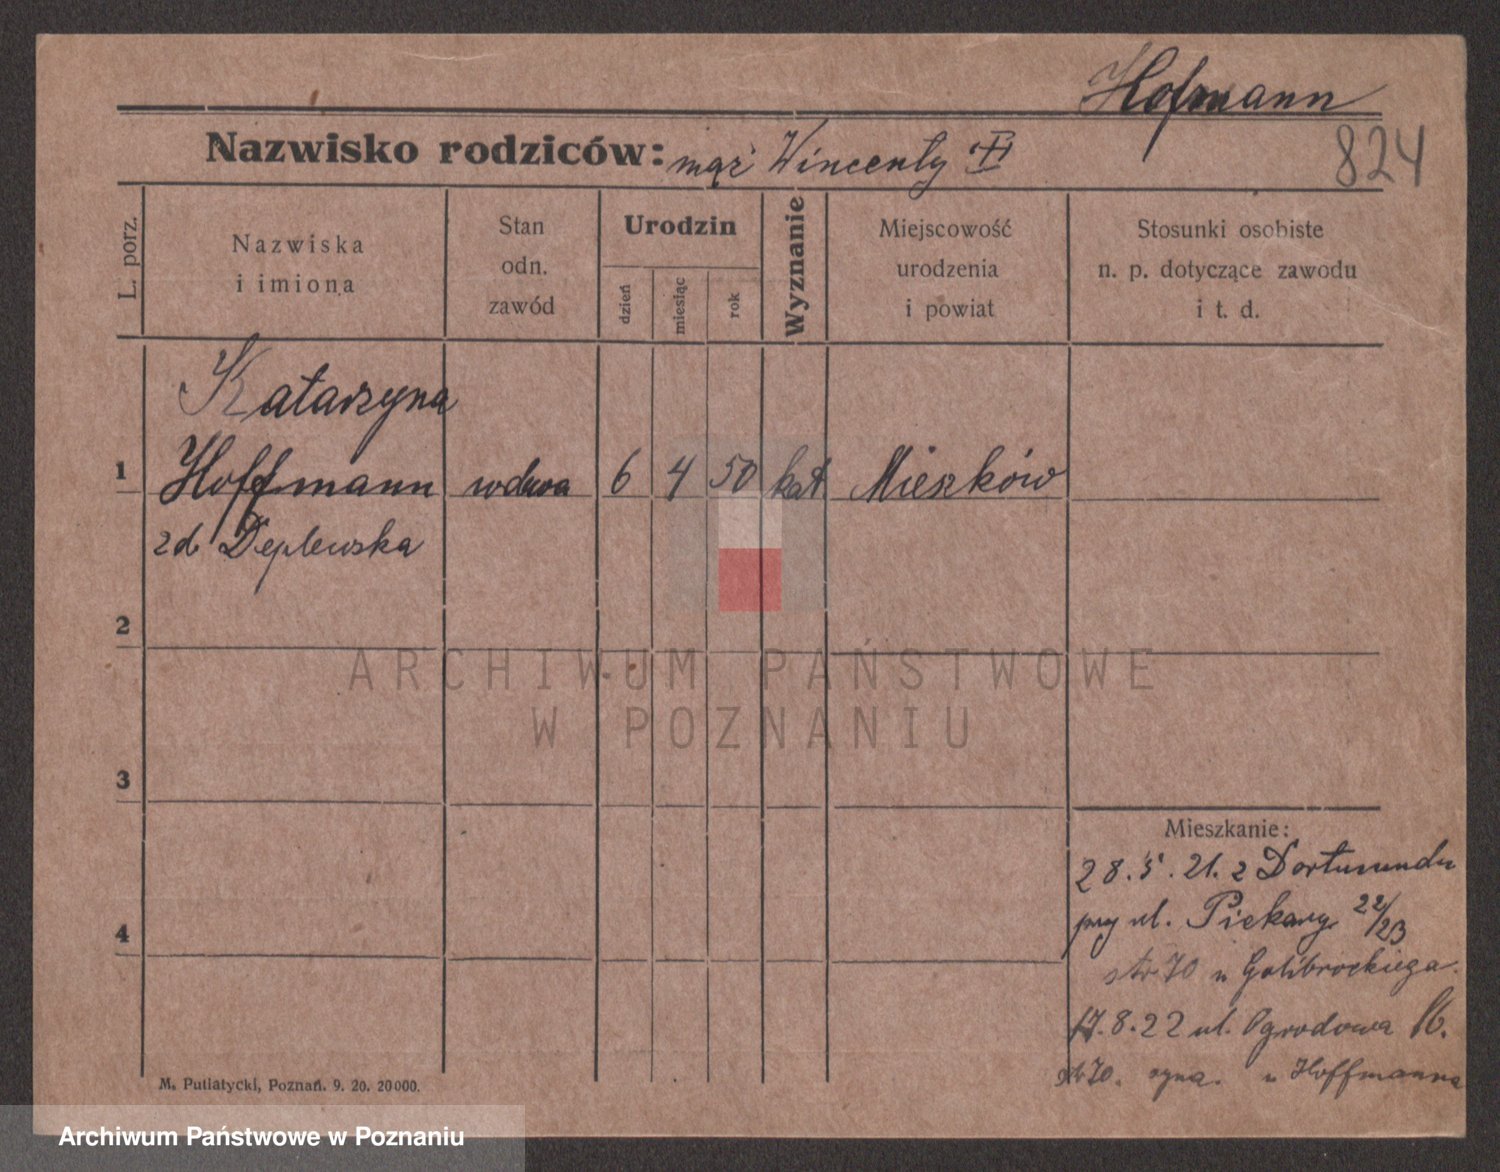 Hofmann
824
Nazwisko rodziców: mąż Wincenty
L. porz.
Nazwiska i imiona
Stan odn. zawód
Urodzin
dzień
miesiąc
rok
Wyznanie
Miejscowość urodzenia i powiat
Stosunki osobiste n. p. dotyczące zawodu i t. d.
Katarzyna
1 Hoffmann wdowa 6 4 50 kat Mieszków
zd Deplewska
2
3
4
Mieszkanie:
28.5.21. z Dortmundu
przy ul. Piekary 22/23
u
17.8.22 ul. Ogrodowa 16.
syna. u Hoffmanna
M. Putiatycki, Poznań. 9. 20. 20000.
ARCHIWUM PAŃSTWOWE
W POZNANIU
Archiwum Państwowe w Poznaniu